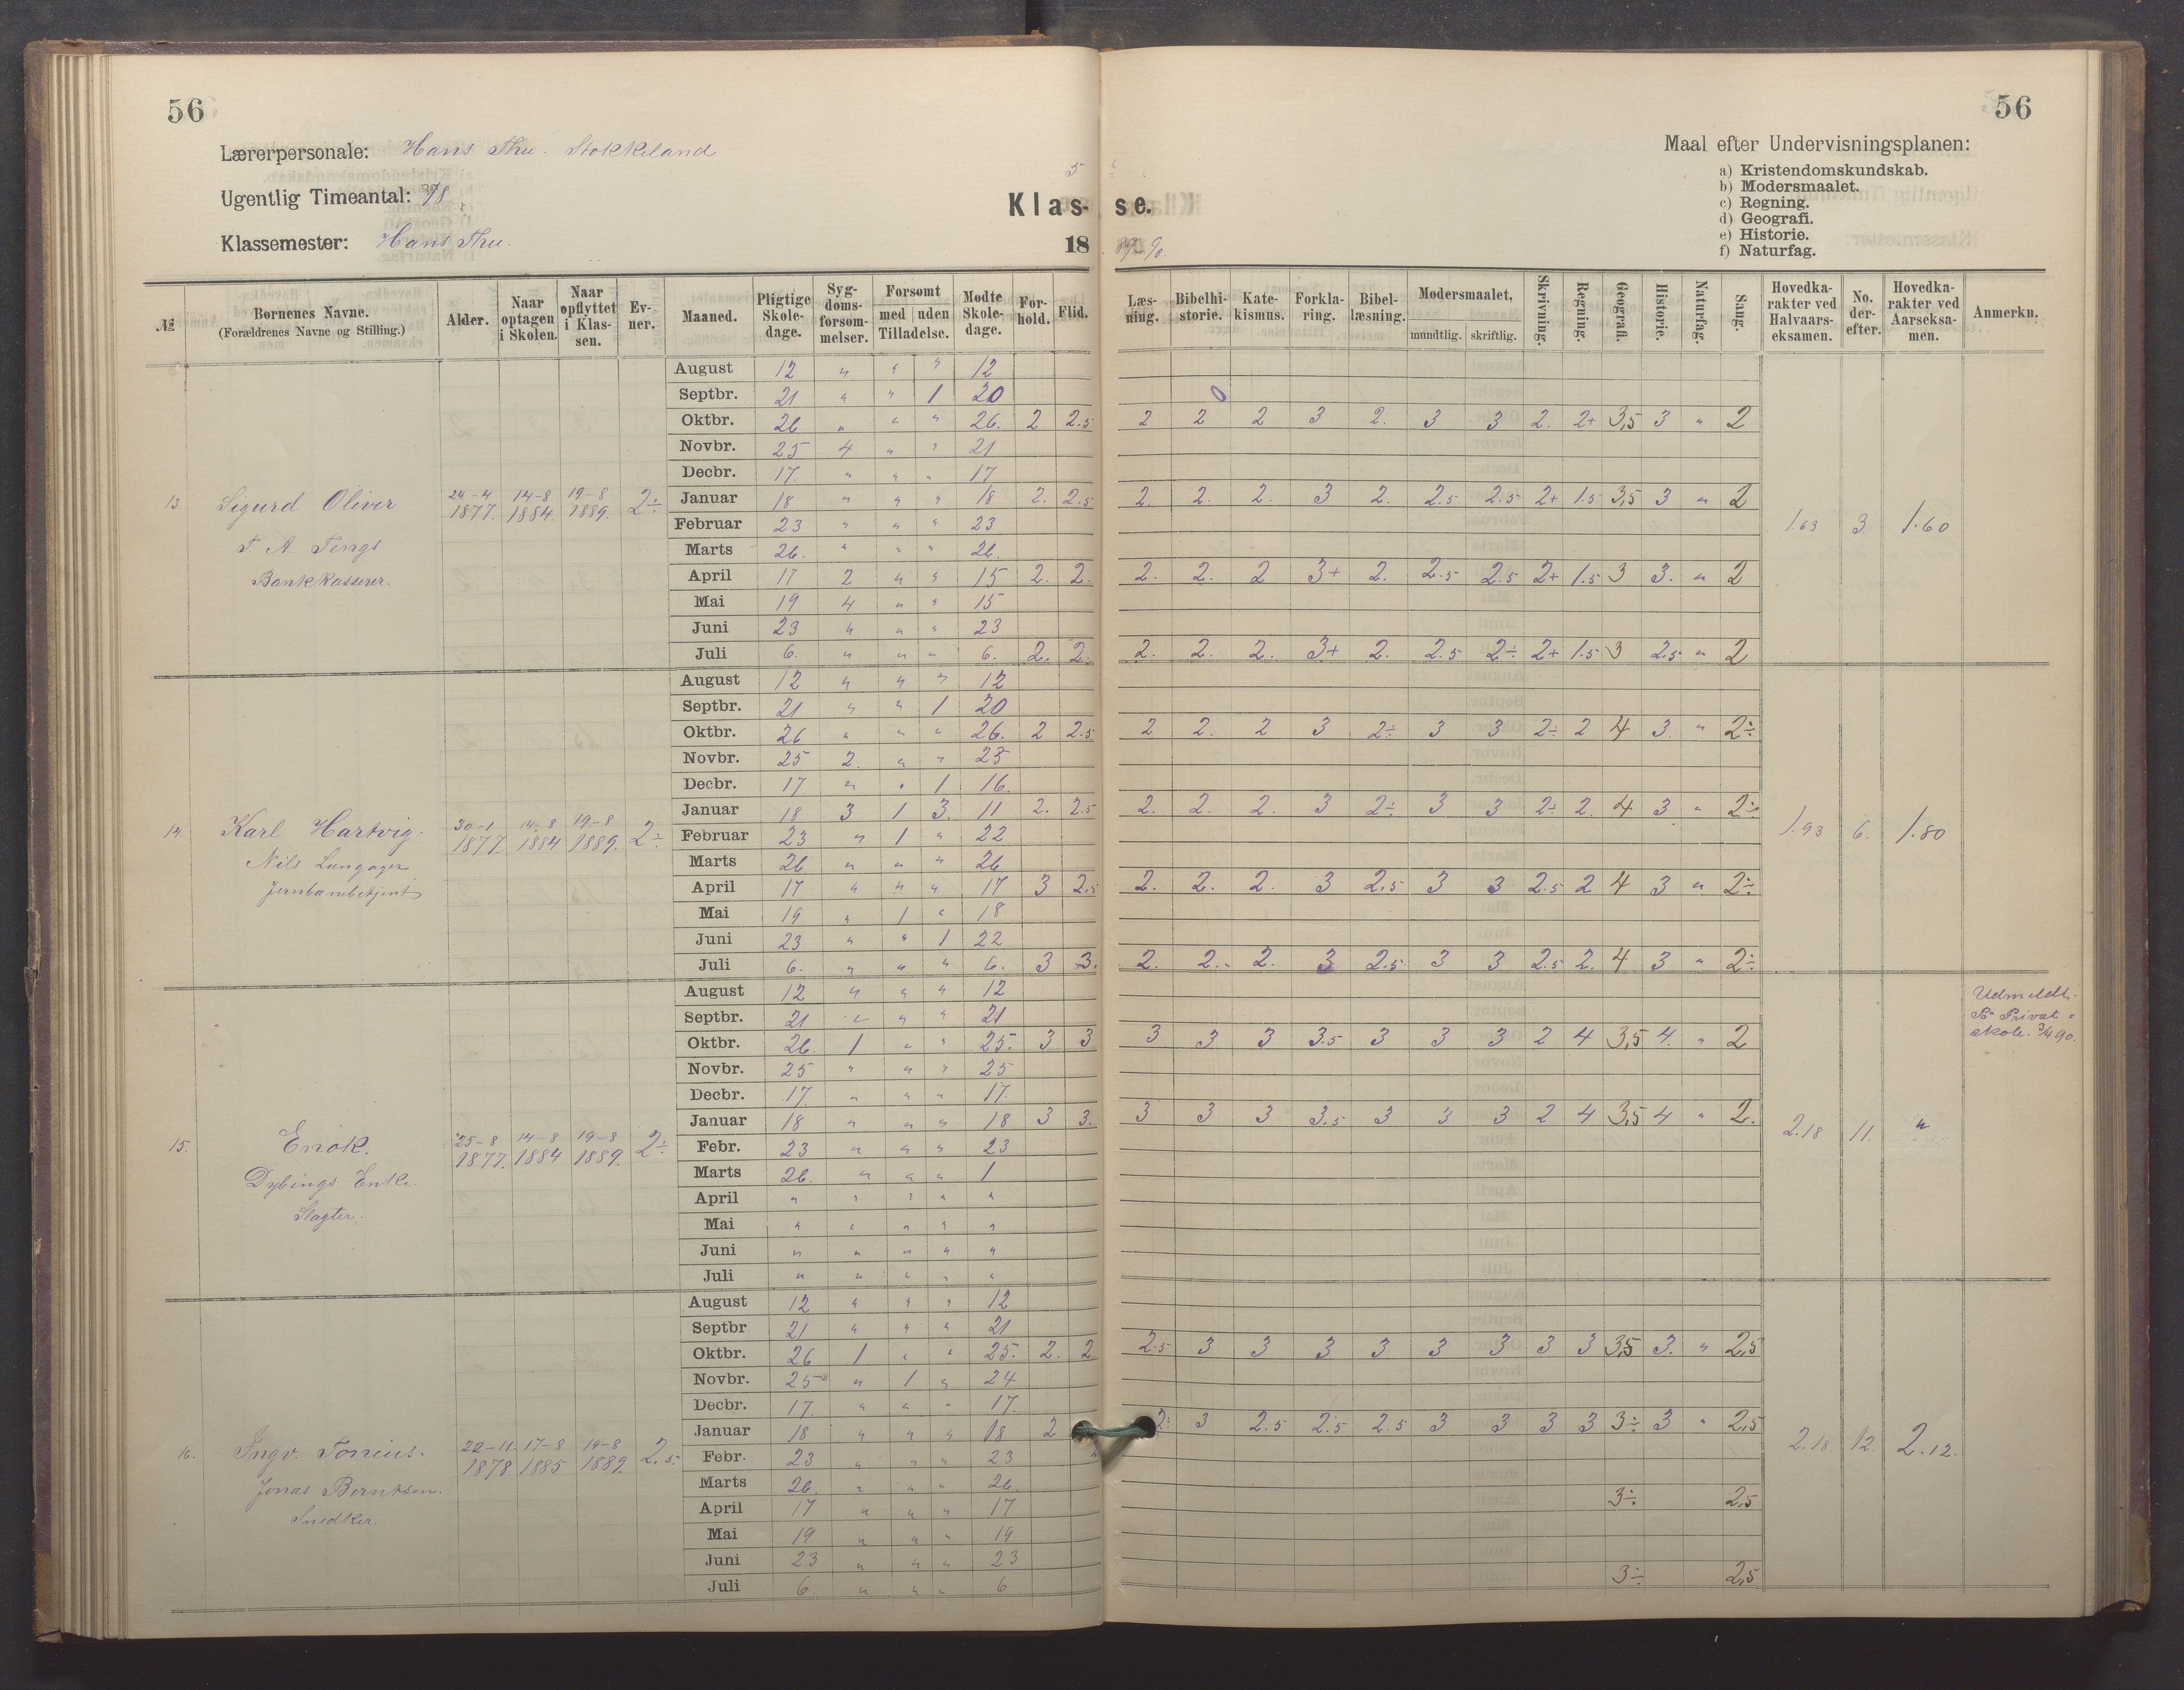 56
56
Lærerpersonale: Hans Thu. Stokkeland
Ugentlig Timeantal:
Klassemester: Hans Thu.
5
Klas- se.
18 89-90.
Maal efter Undervisningsplanen:
a) Kristendomskundskab.
b) Modersmaalet.
c) Regning.
d) Geografi.
e) Historie.
f) Naturfag.
№ Børnenes Navne. (Forældrenes Navne og Stilling.) Alder. Naar optagen i Skolen. Naar opflyttet i Klassen. Evner. Maaned. Pligtige Skoledage. Sygdomsforsømmelser. Forsømt med uden Tilladelse. Mødte Skoledage. Forhold. Flid. Læsning. Bibelhistorie. Katekismus. Forklaring. Bibellæsning. Modersmaalet, mundtlig. skriftlig. Skrivning. Regning. Geografi. Historie. Naturfag. Sang. Hovedkarakter ved Halvaarseksamen. No. derefter. Hovedkarakter ved Aarseksamen. Anmerkn.
13. Sigurd Oliver
T. A. Tengs
Bankkasserer.
24-4 1877. 14-8 1884. 19-8 1889. 2÷
August 12 " " " 12
Septbr. 21 " " 1 20 0
Oktbr. 26 " " " 26. 2 2.5 2 2 2 3 2. 3 3 2. 2+ 3,5 3 " 2
Novbr. 25 4 " " 21
Decbr. 17. " " " 17
Januar 18 " " " 18 2. 2.5 2. 2. 2. 3 2. 2.5 2.5 2+ 1.5 3,5 3 " 2
Februar 23 " " " 23
Marts 26. " " " 26.
April 17 2 " " 15 2. 2. 2. 2. 2 3+ 2. 2.5 2.5 2+ 1.5 3 3. " 2
Mai 19 4 " " 15
Juni 23 " " " 23
Juli 6. " " " 6. 2. 2. 2. 2. 2. 3+ 2. 2.5 2÷ 2+ 1.5 3 2.5 " 2
1.63 3. 1.60
14. Karl Hartvig.
Nils Lungager
Jernbanebetjent
30-1 1877. 14-8 1884 19-8 1889. 2÷
August 12 " " " 12
Septbr. 21 " " 1 20
Oktbr. 26 " " " 26. 2 2.5 2 2. 2 3 2÷ 3 3 2÷ 2 4 3. " 2÷
Novbr. 25 2. " " 23
Decbr. 17 " " 1 16.
Januar 18 3 1 3. 11 2. 2.5 2. 2. 2. 3 2÷ 3 3 2÷ 2. 4 3 " 2÷
Februar 23 " 1 " 22
Marts 26 " " " 26
April 17 " " " 17 3 2.5 2. 2. 2. 3 2.5 3 3 2.5 2 4 3 " 2÷
Mai 19 " 1 " 18
Juni 23 " " 1 22
Juli 6. " " " 6. 3 3. 2. 2. 2. 3 2.5 3 3 2.5 2. 4 3 " 2÷
1.93 6. 1.80
15. Enok.
Dybings Enke.
Slagter.
25-8 1877. 14-8 1884 19-8 1889. 2÷
August 12 " " " 12
Septbr. 21 " " " 21
Oktbr. 26. 1 " " 25. 3 3 3 3 3 3.5 3 3 3 2 4 3,5 4. " 2
Novbr. 25 " " " 25
Decbr. 17. " " " 17.
Januar 18 " " " 18 3 3. 3 3 3 3.5 3 3 3 2 4 3,5 4 " 2.
Febr. 23 " " " 23
Marts 26. " " " 1
April " " " " "
Mai " " " " "
Juni " " " " "
Juli " " " " "
2.18 11. "
Udmeldt.
Privat-
skole. 3/4 90.
16. Ingv. Tonius.
Jonas Berntsen.
Snedker.
22-11 1878 17-8 1885 19-8 1889. 2.5.
August 12 " " " 12
Septbr 21 " " " 21
Oktbr. 26 1 " " 25. 2. 2 2.5 3 3 3 3 3 3 3 3 3,5 3. " 2,5
Novbr. 25 " 1 " 24
Decbr. 17. " " " 17.
Januar 18 " " " 18 2 2÷ 3 2.5 2.5 2.5 3 3 3 3 3÷ 3 " 2,5
Febr. 23 " " " 23
Marts 26. " " " 26.
April 17 " " " 17 3÷ 2,5
Mai 19 " " " 19
Juni 23 " " " 23
Juli 6. " " " 6 3÷ 2,5
2.18. 12. 2.12.